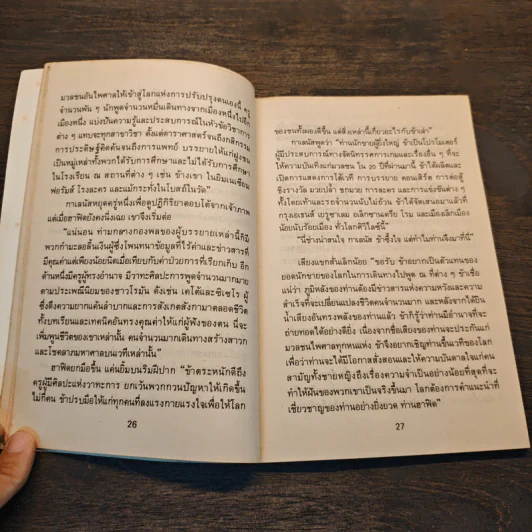 มวลชนอันไพศาลให้เข้าสู่โลกแห่งการปรับปรุงตนเองนี้ ครู
จำนวนพัน ๆ นักพูดจำนวนหมื่นเดินทางจากเมืองหนึ่งไปสู่อีก
เมืองหนึ่ง แบ่งปันความรู้และประสบการณ์ในหัวข้อวิชาการ
ต่าง ๆ แทบจะทุกสาขาวิชา ตั้งแต่ดาราศาสตร์จนถึงกสิกรรม
การประดิษฐ์คิดค้นจนถึงการแพทย์ บรรยายให้แก่ฝูงชน
เป็นหมู่เหล่าทั้งพวกได้รับการศึกษาและไม่ได้รับการศึกษา
ในโรงเรียน ณ สถานที่ต่าง ๆ เช่น ข้างเขา ในยิมเนเซียม
ฟอรัมส์ โรงละคร และแม้กระทั่งในโบสถ์ในวัด"
กาเลนัสหยุดครู่หนึ่งเพื่อดูปฏิกิริยาตอบโต้จากเจ้าภาพ
แต่เมื่อฮาฟิดยังคงนิ่งเฉย เขาจึงเริ่มต่อ
"แน่นอน ท่ามกลางกองพลของผู้บรรยายเหล่านี้ก็มี
พวกกำมะลอลิ้นเงินผู้ซึ่งโพนทนาข้อมูลที่ไร้ค่าและข่าวสารที่
มีคุณค่าแต่เพียงน้อยนิดเมื่อเทียบกับค่าป่วยการที่เรียกเก็บ อีก
ด้านหนึ่งมีครูผู้ทรงอำนาจ มีวาทะศิลปะการพูดจำนวนมากมาย
ตามประเพณีนิยมของชาวโรมัน ดังเช่น เคโต้และซิเซโร ผู้
ซึ่งดึงความยากแค้นลำบากและการสังเกตสังกามาตลอดชีวิต
ทั้งบทเรียนและเทคนิคอันทรงคุณค่าให้แก่ผู้ฟังของตน นี่จะ
เพิ่มพูนชีวิตของเขาเหล่านั้น คนจำนวนมากเดินทางสร้างสาวก
และโชคลาภมหาศาลบนเวทีเหล่านั้น"
ฮาฟิดยกมือขึ้น แต่นยิ้มบนริมฝีปาก "ข้าตระหนักดีถึง
ครูผู้มีศิลปะแห่งวาทะการ ยกเว้นพวกกวนปัญหาให้เกิดขึ้น
ไม่กี่คน ข้าปรบมือให้แก่ทุกคนที่ลงแรงกายแรงใจเพื่อให้โลก
26
ของชนทั้งผองดีขึ้น แต่สิ่งเหล่านี้เกี่ยวอะไรกับข้าเล่า"
กาเลนัสพูดว่า "ท่านนักขายผู้ยิ่งใหญ่ ข้าเป็นโปรโมเตอร์
ผู้มีประสบการณ์ทางจัดนิทรรศการเกมและเรื่องอื่น ๆ ที่จะ
ให้ความบันเทิงแก่มวลชน ใน 20 ปีที่ผ่านมา ข้าได้ผลิตและ
เปิดการแสดงการโต้เวที การบรรยาย คอนเสิร์ต การต่อสู้
ชิงรางวัล มวยปล้ำ ชกมวย การละคร และการแข่งขันต่าง ๆ
ทั้งโดยเท้าและรถจำนวนนับไม่ถ้วน ข้าได้จัดเสนอมาแล้วที่
กรุงเอเธนส์ เยรูซาเลม อเล็กซานเดรีย โรม และเมืองเล็กเมือง
น้อยนับร้อยเมือง ทั่วโลกศิวิไลซ์นี้"
"นี่ช่างน่าสนใจ กาเลนัส ข้าซึ้งใจ แต่ทำไมท่านจึงมาที่นี่"
เสียงแขกสั่นเล็กน้อย "ขอรับ ข้าอยากเป็นตัวแทนของ
ยอดนักขายของโลกในการเดินทางไปพูด ณ ที่ต่าง ๆ ข้าเชื่อ
แน่ว่า ภูมิหลังของท่านต้องมีข่าวสารแห่งความหวังและความ
สำเร็จที่จะเปลี่ยนแปลงชีวิตคนจำนวนมาก และหลังจากได้ยิน
น้ำเสียงอันทรงพลังของท่านแล้ว ข้าก็รู้ว่าท่านมีอำนาจที่จะ
ถ่ายทอดได้อย่างดียิ่ง เนื่องจากชื่อเสียงของท่านจะประกันแก่
มวลชนไพศาลทุกหนแห่ง ข้าจึงอยากเชิญท่านขึ้นเวทีของโลก
เพื่อว่าท่านจะได้มีโอกาสสั่งสอนและให้ความบันดาลใจแก่คน
สามัญทั้งชายหญิงถึงเรื่องความจำเป็นอย่างน้อยที่สุดที่จะ
ทำให้ฝันของพวกเขาเป็นจริงขึ้นมา โลกต้องการคำแนะนำที่
เชี่ยวชาญของท่านอย่างยิ่งยวด ท่านฮาฟิด"
27